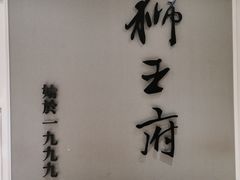 獅王府
始於一九九九